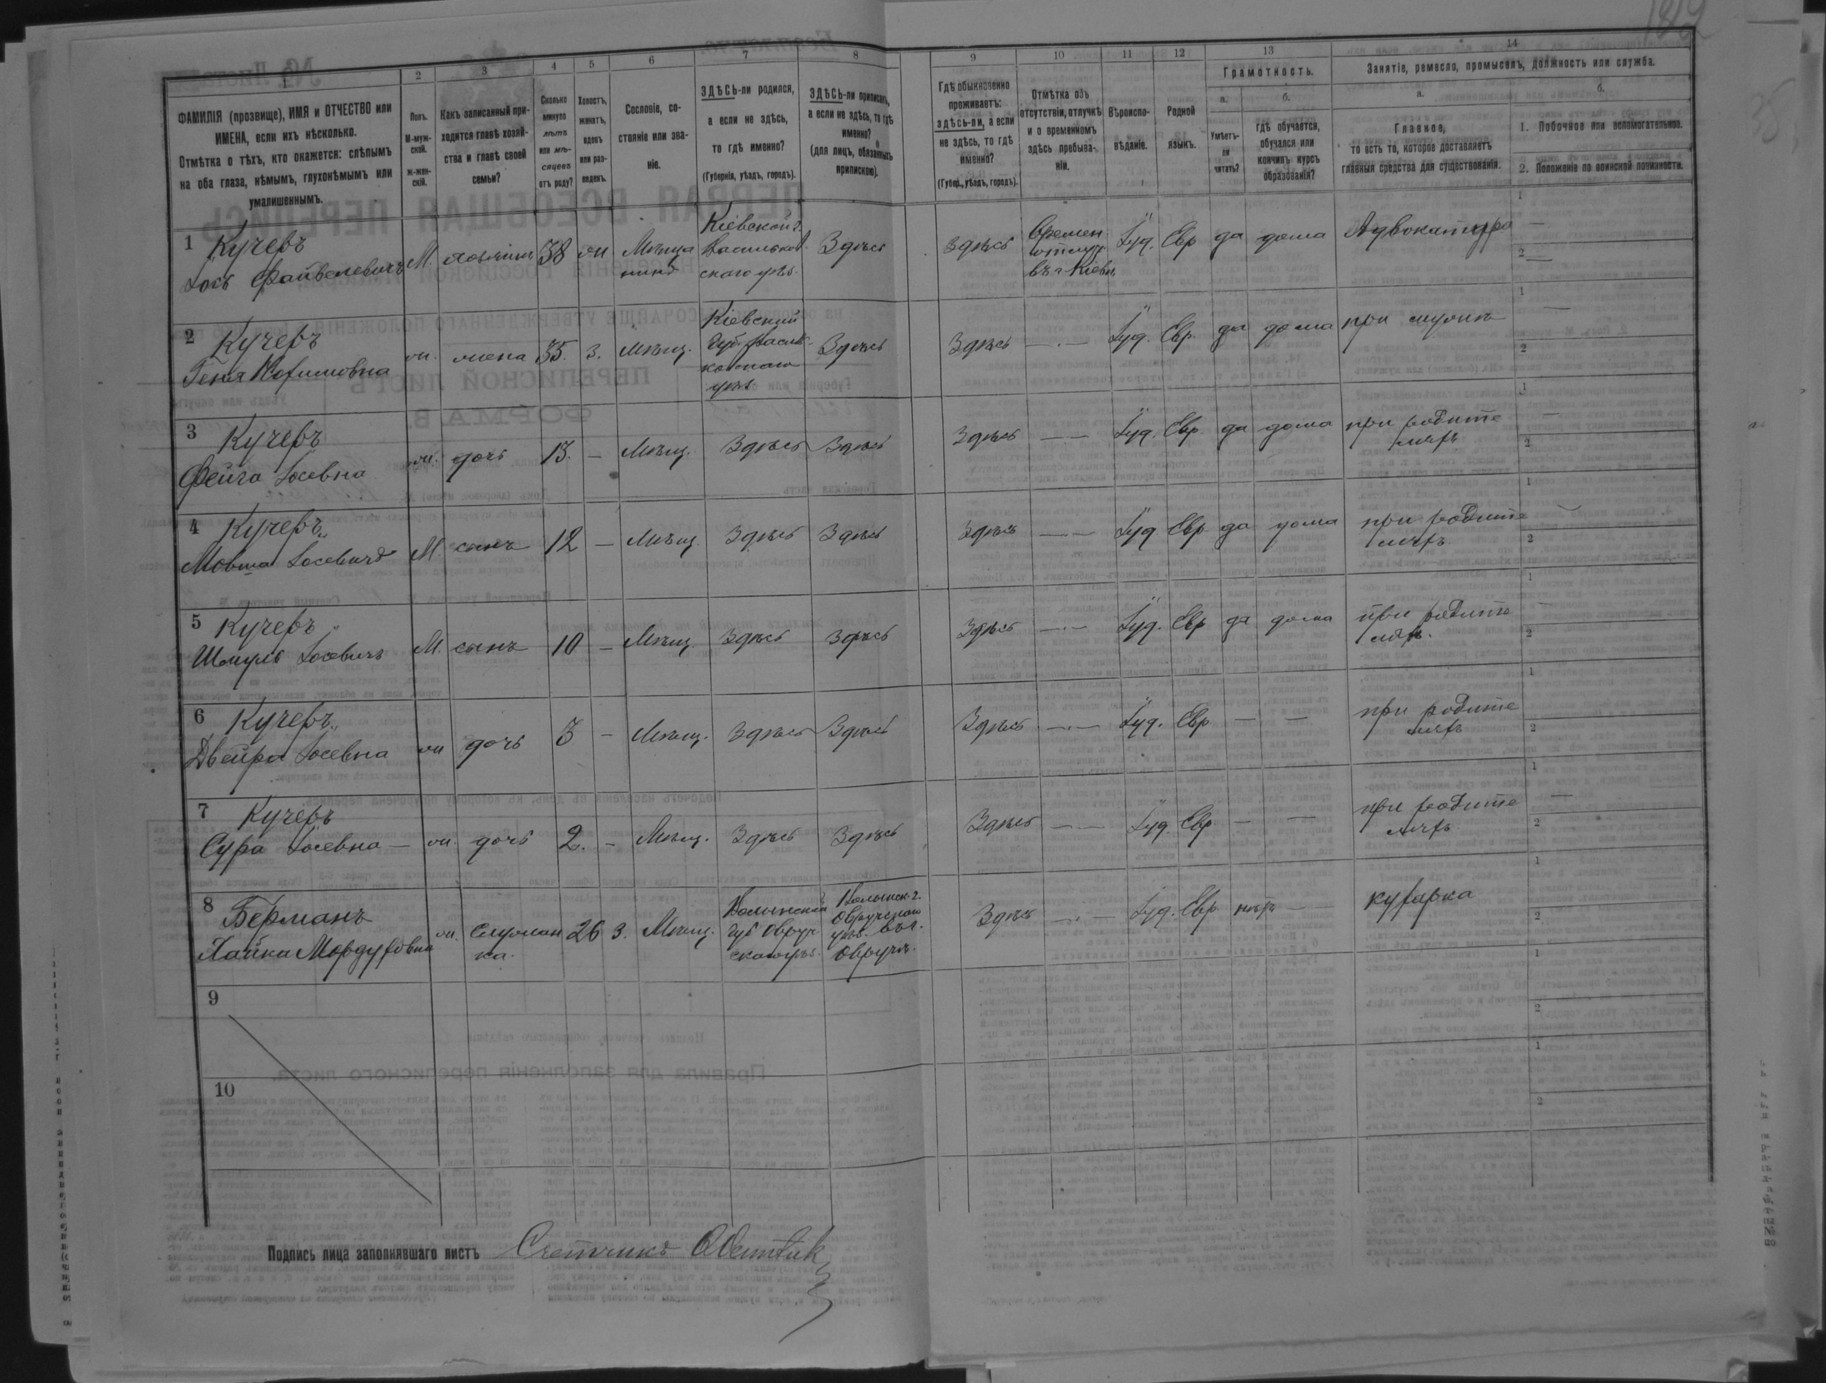 1 2 3 4 5 6 7 8 9 10 11 12 13 14
Грамотность.
Занятіе, ремесло, промыселъ, должность или служба.
ФАМИЛІЯ (прозвище), ИМЯ и ОТЧЕСТВО или
ИМЕНА, если ихъ нѣсколько.
Отмѣтка о тѣхъ, кто окажется: слѣпымъ
на оба глаза, нѣмымъ, глухонѣмымъ или
умалишеннымъ.
Полъ.
М-муж-
ской.
Ж-жен-
скій.
Какъ записанный при-
ходится главѣ хозяй-
ства и главѣ своей
семьи?
Сколько
минуло
лѣтъ
или мѣ-
сяцевъ
отъ роду?
Холостъ,
женатъ,
вдовъ
или раз-
веденъ.
Сословіе, со-
стояніе или зва-
ніе.
ЗДѢСЬ-ли родился,
а если не здѣсь,
то гдѣ именно?
(Губернія, уѣздъ, городъ).
ЗДѢСЬ-ли приписанъ,
а если не здѣсь, то гдѣ
именно?
(для лицъ, обязанныхъ
припискою).
Гдѣ обыкновенно
проживаетъ:
здѣсь-ли, а если
не здѣсь, то гдѣ
именно?
(Губер., уѣздъ, городъ).
Отмѣтка объ
отсутствіи, отлучкѣ
и о временномъ
здѣсь пребыва-
ніи.
Вѣроиспо-
вѣданіе.
Родной
языкъ.
а.
Умѣетъ-
ли
читать?
б.
Гдѣ обучается,
обучался или
кончилъ курсъ
образованія?
а.
Главное,
то есть то, которое доставляетъ
главныя средства для существованія.
б.
1. Побочное или вспомогательное.
2. Положеніе по воинской повинности.
1 Кучеръ
Іось Файвелевичъ М. хозяинъ 38 ж Мѣща
нинъ Кіевской г.
Васильков
скаго уѣз. Здѣсь Здѣсь Времен.
отлуч.
въ г. Кіевъ Іуд. Евр да дома Адвокатура
2 Кучеръ
Геня ж. жена 35 з. мѣщ. Кіевский
губ Василь
ковскаго
уѣз Здѣсь Здѣсь — Іуд. Евр. да дома при мужѣ
3 Кучеръ
Фейга Іосевна ж. дочь 13. — Мѣщ. Здѣсь Здѣсь Здѣсь — Іуд. Евр. да дома при родите
ляхъ
4 Кучеръ
Мовша Іосевичъ М. сынъ 12 — Мѣщ. Здѣсь Здѣсь Здѣсь — Іуд Евр да дома при родите
ляхъ
5 Кучеръ
Шмуль Іосевичъ М. сынъ 10 — Мѣщ. Здѣсь Здѣсь Здѣсь — Іуд. Евр да дома при родите
ляхъ.
6 Кучеръ
Двейра Іосевна ж дочь 3 — Мѣщ. Здѣсь Здѣсь Здѣсь — Іуд. Евр — — при родите
ляхъ
7 Кучеръ
Сура Іосевна — ж. дочь 2. — Мѣщ. Здѣсь Здѣсь Здѣсь — Іуд. Евр — — при родите
ляхъ
8 Берманъ
Хайка Мордуховна ж. Служан
ка. 26 з. Мѣщ. Волынской
губ Овруч
скаго уѣз. Волынск. г.
Овручскаго
уѣз.
Овручъ. Здѣсь — Іуд. Евр нѣтъ — кухарка
9
10
Подпись лица заполнявшаго листъ Счетчикъ